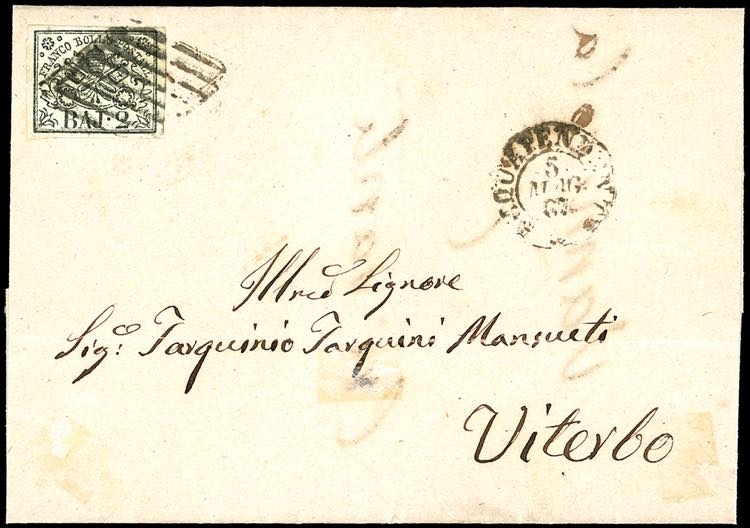 FRANCO BOLLO
BAJ·2
ACQUAPENDENTE
5
MAG
67
Illmo Signore
Sigo: Tarquinio Tarquini Mansueti
Viterbo